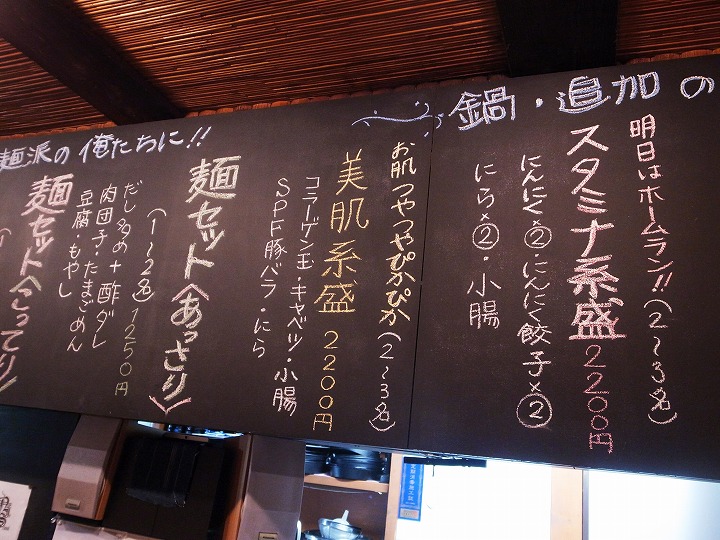 鍋・追加の
明日はホームラン!!(2〜3名)
スタミナ系盛2200円
にんにく×②・にんにく餃子×②
にら×②・小腸
お肌つやつやぴかぴか(2〜3名)
美肌系盛2200円
コラーゲン玉・キャベツ・小腸
SPF豚バラ・にら
麺派の俺たちに!!
麺セット〈あっさり〉
(1〜2名)1250円
だし多め+酢ダレ
肉団子・たまごめん
豆腐・もやし
麺セット〈こってり〉